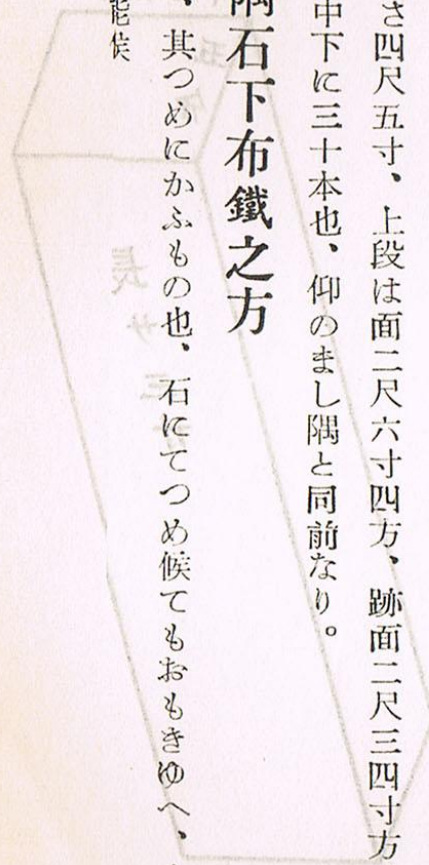 さ四尺五寸、上段は面二尺六寸四方、跡面二尺三四寸方
中下に三十本也、仰のまし隅と同前なり。
隅石下布鐵之方
、其つめにかふもの也、石にてつめ候てもおもきゆへ、
能候